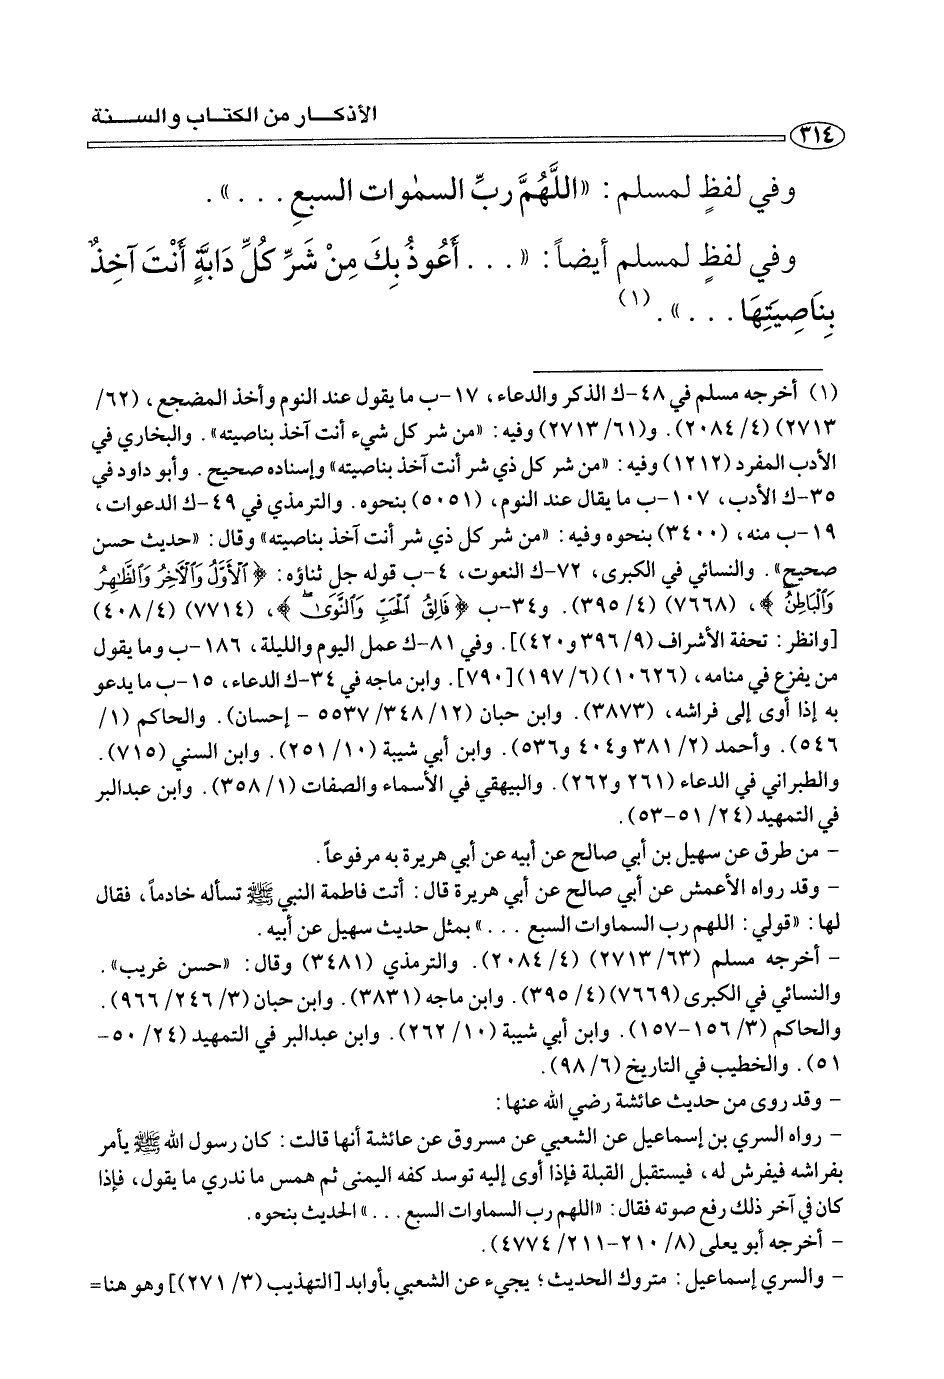 الأذكـــار من الكتـاب والســـنة
٣١٤
وفي لفظٍ لمسلم: «اللَّهُمَّ ربِّ السمٰوات السبعِ . . .».
وفي لفظٍ لمسلم أيضاً: «. . . أَعُوذُ بِكَ مِنْ شَرِّ كُلِّ دَابةٍ أَنْتَ آخِذٌ
بِنَاصِيَتِهَا . . .».(١)
(١) أخرجه مسلم في ٤٨-ك الذكر والدعاء، ١٧-ب ما يقول عند النوم وأخذ المضجع، (٦٢/
٢٧١٣) (٤/ ٢٠٨٤). و(٦١/ ٢٧١٣) وفيه: «من شر كل شيء أنت آخذ بناصيته». والبخاري في
الأدب المفرد (١٢١٢) وفيه: «من شر كل ذي شر أنت آخذ بناصيته» وإسناده صحيح. وأبو داود في
٣٥-ك الأدب، ١٠٧-ب ما يقال عند النوم، (٥٠٥١) بنحوه. والترمذي في ٤٩-ك الدعوات،
١٩-ب منه، (٣٤٠٠) بنحوه وفيه: «من شر كل ذي شر أنت آخذ بناصيته» وقال: «حديث حسن
صحيح». والنسائي في الكبرى، ٧٢-ك النعوت، ٤-ب قوله جل ثناؤه: ﴿ٱلْأَوَّلُ وَٱلْآخِرُ وَٱلظَّٰهِرُ
وَٱلْبَاطِنُ﴾، (٧٦٦٨) (٤/ ٣٩٥). و٣٤-ب ﴿فَالِقُ ٱلْحَبِّ وَٱلنَّوَىٰ﴾، (٧٧١٤) (٤/ ٤٠٨)
[وانظر: تحفة الأشراف (٩/ ٣٩٦ و٤٢٠)]. وفي ٨١-ك عمل اليوم والليلة، ١٨٦-ب وما يقول
من يفزع في منامه، (١٠٦٢٦) (٦/ ١٩٧) [٧٩٠]. وابن ماجه في ٣٤-ك الدعاء، ١٥-ب ما يدعو
به إذا أوى إلى فراشه، (٣٨٧٣). وابن حبان (١٢/ ٣٤٨/ ٥٥٣٧ - إحسان). والحاكم (١/
٥٤٦). وأحمد (٢/ ٣٨١ و٤٠٤ و٥٣٦). وابن أبي شيبة (١٠/ ٢٥١). وابن السني (٧١٥).
والطبراني في الدعاء (٢٦١ و٢٦٢). والبيهقي في الأسماء والصفات (١/ ٣٥٨). وابن عبدالبر
في التمهيد (٢٤/ ٥١-٥٣).
- من طرق عن سهيل بن أبي صالح عن أبيه عن أبي هريرة به مرفوعاً.
- وقد رواه الأعمش عن أبي صالح عن أبي هريرة قال: أتت فاطمة النبي ﷺ تسأله خادماً، فقال
لها: «قولي: اللهم رب السماوات السبع . . .» بمثل حديث سهيل عن أبيه.
- أخرجه مسلم (٦٣/ ٢٧١٣) (٤/ ٢٠٨٤). والترمذي (٣٤٨١) وقال: «حسن غريب».
والنسائي في الكبرى (٧٦٦٩) (٤/ ٣٩٥). وابن ماجه (٣٨٣١). وابن حبان (٣/ ٢٤٦/ ٩٦٦).
والحاكم (٣/ ١٥٦-١٥٧). وابن أبي شيبة (١٠/ ٢٦٢). وابن عبدالبر في التمهيد (٢٤/ ٥٠-
٥١). والخطيب في التاريخ (٦/ ٩٨).
- وقد روى من حديث عائشة رضي الله عنها:
- رواه السري بن إسماعيل عن الشعبي عن مسروق عن عائشة أنها قالت: كان رسول الله ﷺ يأمر
بفراشه فيفرش له، فيستقبل القبلة فإذا أوى إليه توسد كفه اليمنى ثم همس ما ندري ما يقول، فإذا
كان في آخر ذلك رفع صوته فقال: «اللهم رب السماوات السبع . . .» الحديث بنحوه.
- أخرجه أبو يعلى (٨/ ٢١٠-٢١١/ ٤٧٧٤).
- والسري إسماعيل: متروك الحديث؛ يجيء عن الشعبي بأوابد [التهذيب (٣/ ٢٧١)] وهو هنا=